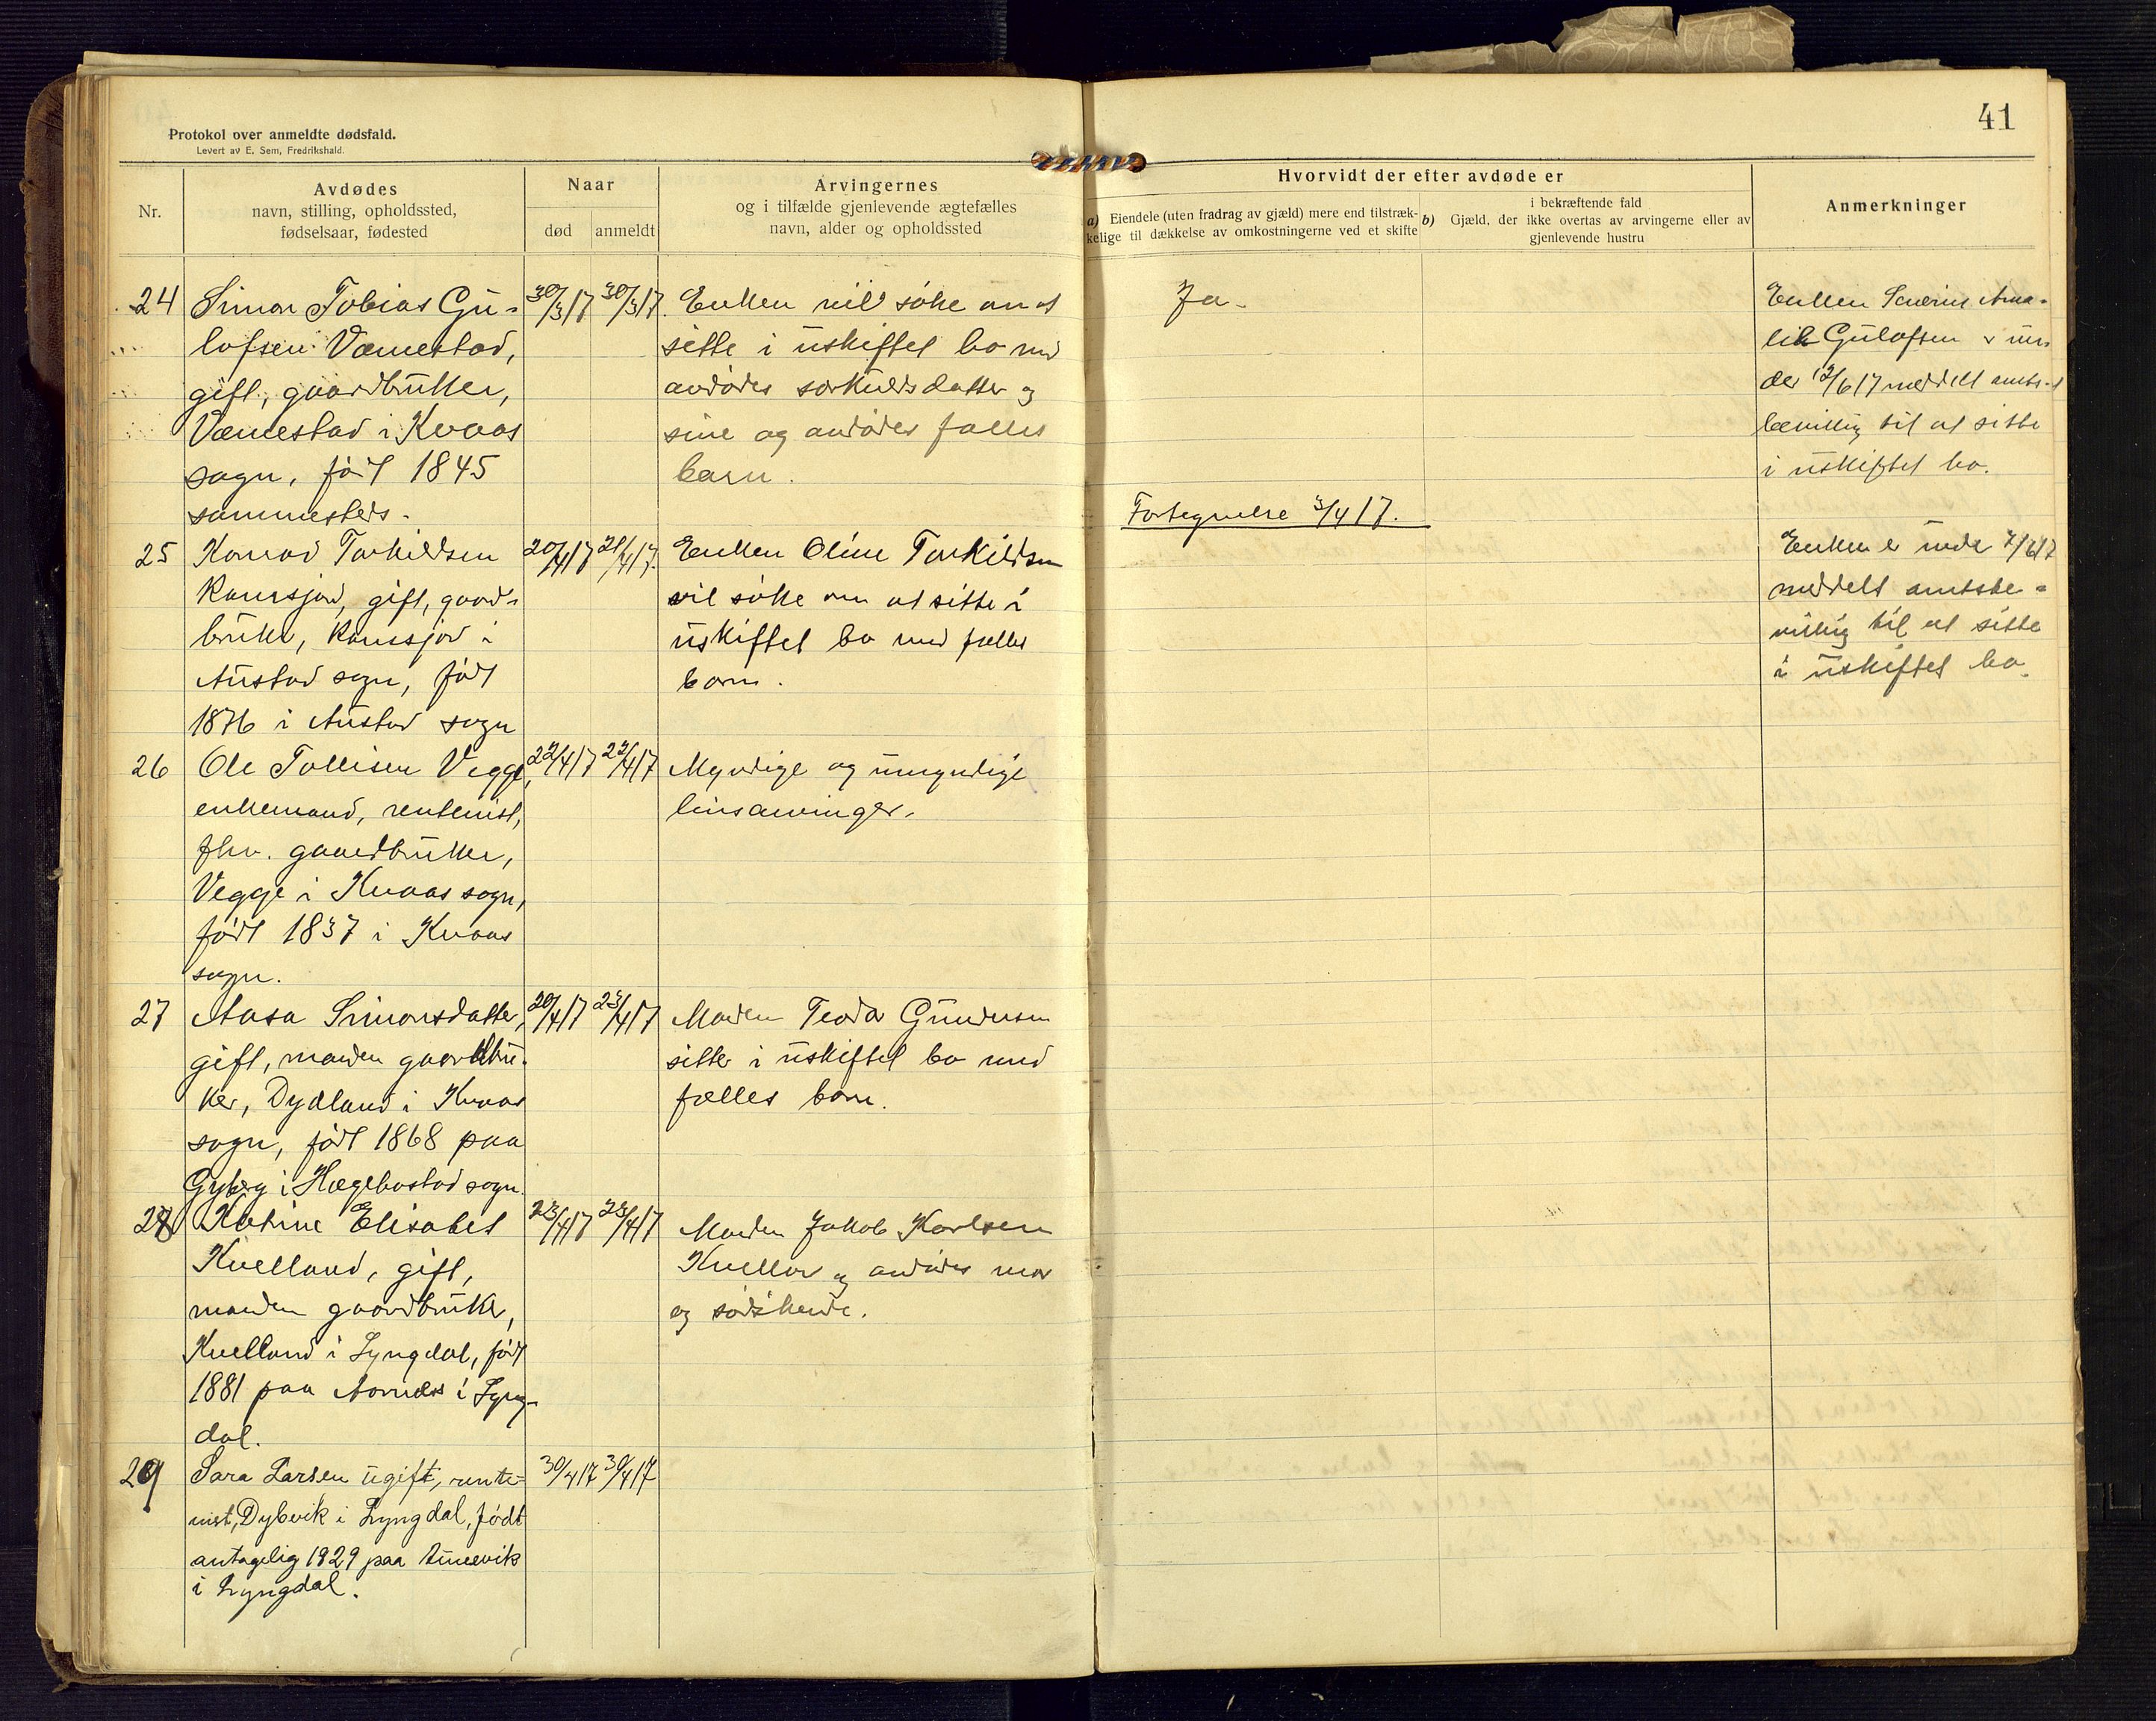 41
Protokol over anmeldte dødsfald.
Levert av E. Sem, Fredrikshald.
Nr.
Avdødes
navn, stilling, opholdssted,
fødselsaar, fødested
Naar
død
anmeldt
Arvingernes
og i tilfælde gjenlevende ægtefælles
navn, alder og opholdssted
Hvorvidt der efter avdøde er
a) Eiendele (uten fradrag av gjæld) mere end tilstræk-
kelige til dækkelse av omkostningerne ved et skifte
i bekræftende fald
b) Gjæld, der ikke overtas av arvingerne eller av
gjenlevende hustru
Anmerkninger
24
Simon Tobias Gu-
lofsen Væmestad,
gift, gaardbruker,
Væmestad i Kvaas
sogn, født 1845
sammesteds.
30/3 17
30/3 17.
Enken vil søke om at
sitte i uskiftet bo med
avdødes særkuldsdatter og
sine og avdødes fælles
barn.
Ja.
Fortegnelse 3/4 17.
Enken Severine Ama-
lie Gulofsen er un-
der 12/6 17 meddelt amts-
bevilling til at sitte
i uskiftet bo.
25
Konrad Torkildsen
Ramsjord, gift, gaard-
bruker, Ramsjord i
Austad sogn, født
1876 i Austad sogn
20/4 17
21/4 17.
Enken Oline Torkildsen
vil søke om at sitte i
uskiftet bo med fælles
barn.
Enken er under 7/6 17
meddelt amtsbe-
villing til at sitte
i uskiftet bo.
26
Ole Tollisen Vegge,
enkemand, rentenist,
fhv. gaardbruker,
Vegge i Kvaas sogn,
født 1837 i Kvaas
sogn.
22/4 17
23/4 17
Myndige og umyndige
livsarvinger.
27
Aasa Simonsdatter,
gift, manden gaardbru-
ker, Dydland i Kvaas
sogn, født 1868 paa
Gyberg i Hægebostad sogn.
20/4 17
23/4 17
Manden Teodor Gundersen
sitter i uskiftet bo med
fælles barn.
28
Katrine Elisabet
Kvelland, gift,
manden gaardbruker,
Kvelland i Lyngdal, født
1881 paa Aarnes i Lyng-
dal.
23/4 17
23/4 17
Manden Jakob Karlsen
Kvelland og avdødes mor
og sødskende.
29
Sara Larsen ugift, rente-
nist, Dybvik i Lyngdal, født
antagelig 1829 paa
i Lyngdal.
30/4 17
30/4 17